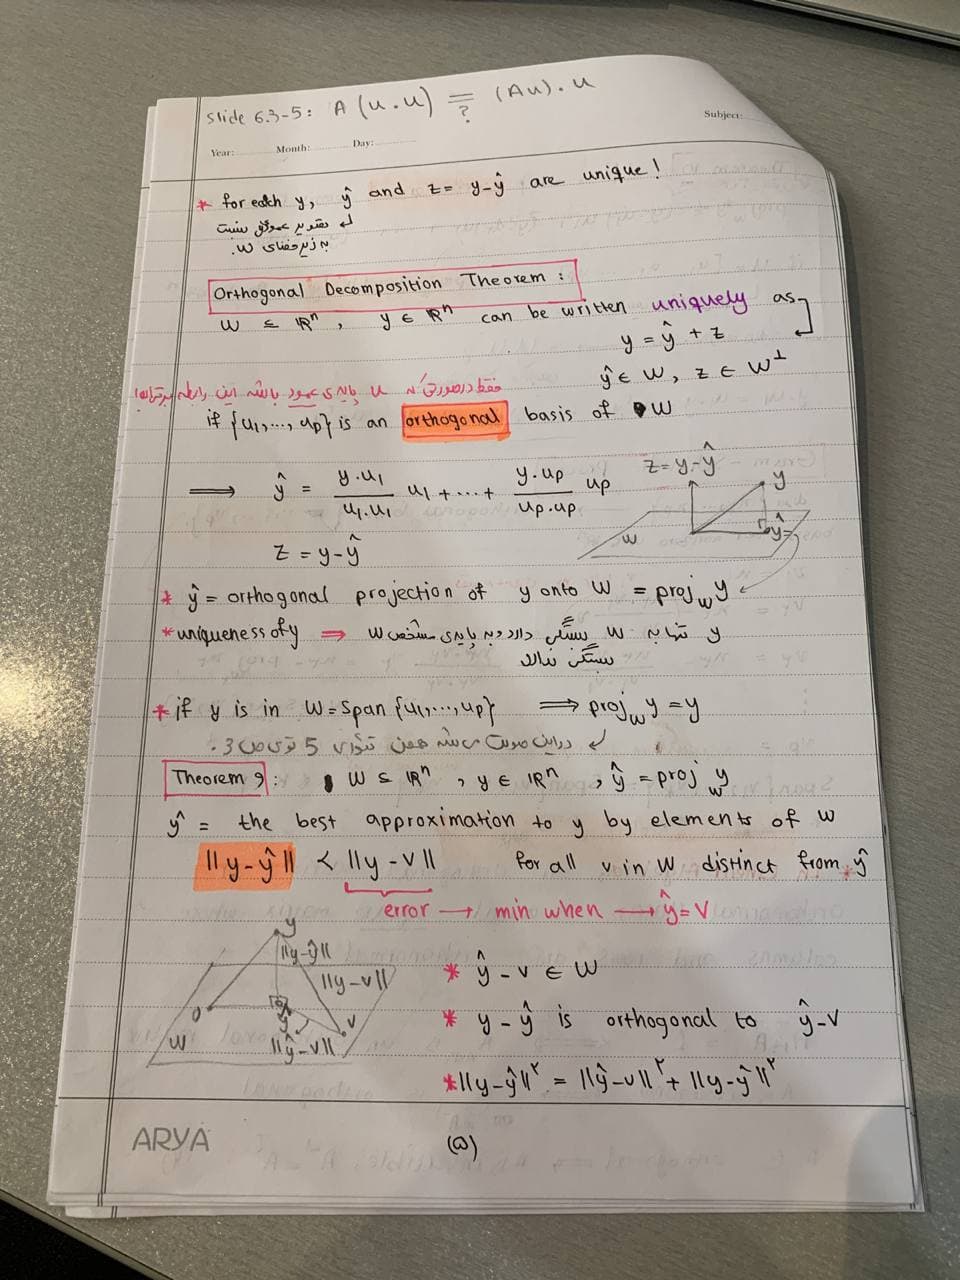 Slide 6.3-5: A (u.u) = (Au).u
?
Subject:
Year: Month: Day:
* for each y, ŷ and z = y-ŷ are unique!
تصویر عمودی نسبت
به زیرفضای W.
Orthogonal Decomposition Theorem:
W ⊆ ℝⁿ, y ∈ ℝⁿ can be written uniquely as
y = ŷ + z
ŷ ∈ W, z ∈ W⊥
فقط در صورتی که u پایه‌ی عمود باشه این رابطه برقراره!
if {u1,..., up} is an orthogonal basis of W
⟹ ŷ = y.u1/u1.u1 u1 + ... + y.up/up.up up
z = y-ŷ
y
W
ŷ=
z = y-ŷ
* ŷ = orthogonal projection of y onto W = projw y
* uniqueness of y ⇒ y تنها به W بستگی دارد و به پایه‌ی مشخص W
بستگی ندارد
* if y is in W = Span {u1,..., up} ⟹ projw y = y
در این صورت می‌شه همون تئوری 5 توی ص 3.
Theorem 9: W ⊆ ℝⁿ, y ∈ ℝⁿ, ŷ = projw y
ŷ = the best approximation to y by elements of W
||y-ŷ|| < ||y-v|| for all v in W distinct from ŷ
error → min when → ŷ = v
y
||y-ŷ||
||y-v||
0
ŷ
v
W
||ŷ-v||
* ŷ-v ∈ W
* y-ŷ is orthogonal to ŷ-v
* ||y-ŷ||² = ||ŷ-v||² + ||y-ŷ||²
ARYA
(۵)